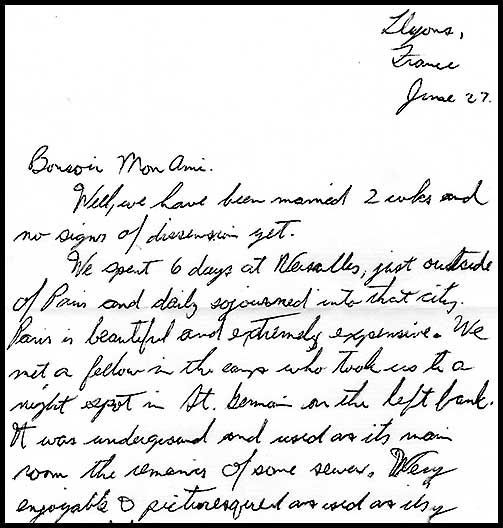 Llyons,
France
June 27.
Bonsoir Mon Ami.
Well, we have been married 2 wks and
no signs of dissension yet.
We spent 6 days at Versalles, just outside
of Paris and daily sojourned into that city.
Paris is beautiful and extremely expensive. We
met a fellow in the camp who took us to a
night spot in St. Germain on the left bank.
It was underground and used as its main
room the remains of some sewer. Very
enjoyable & as used as its